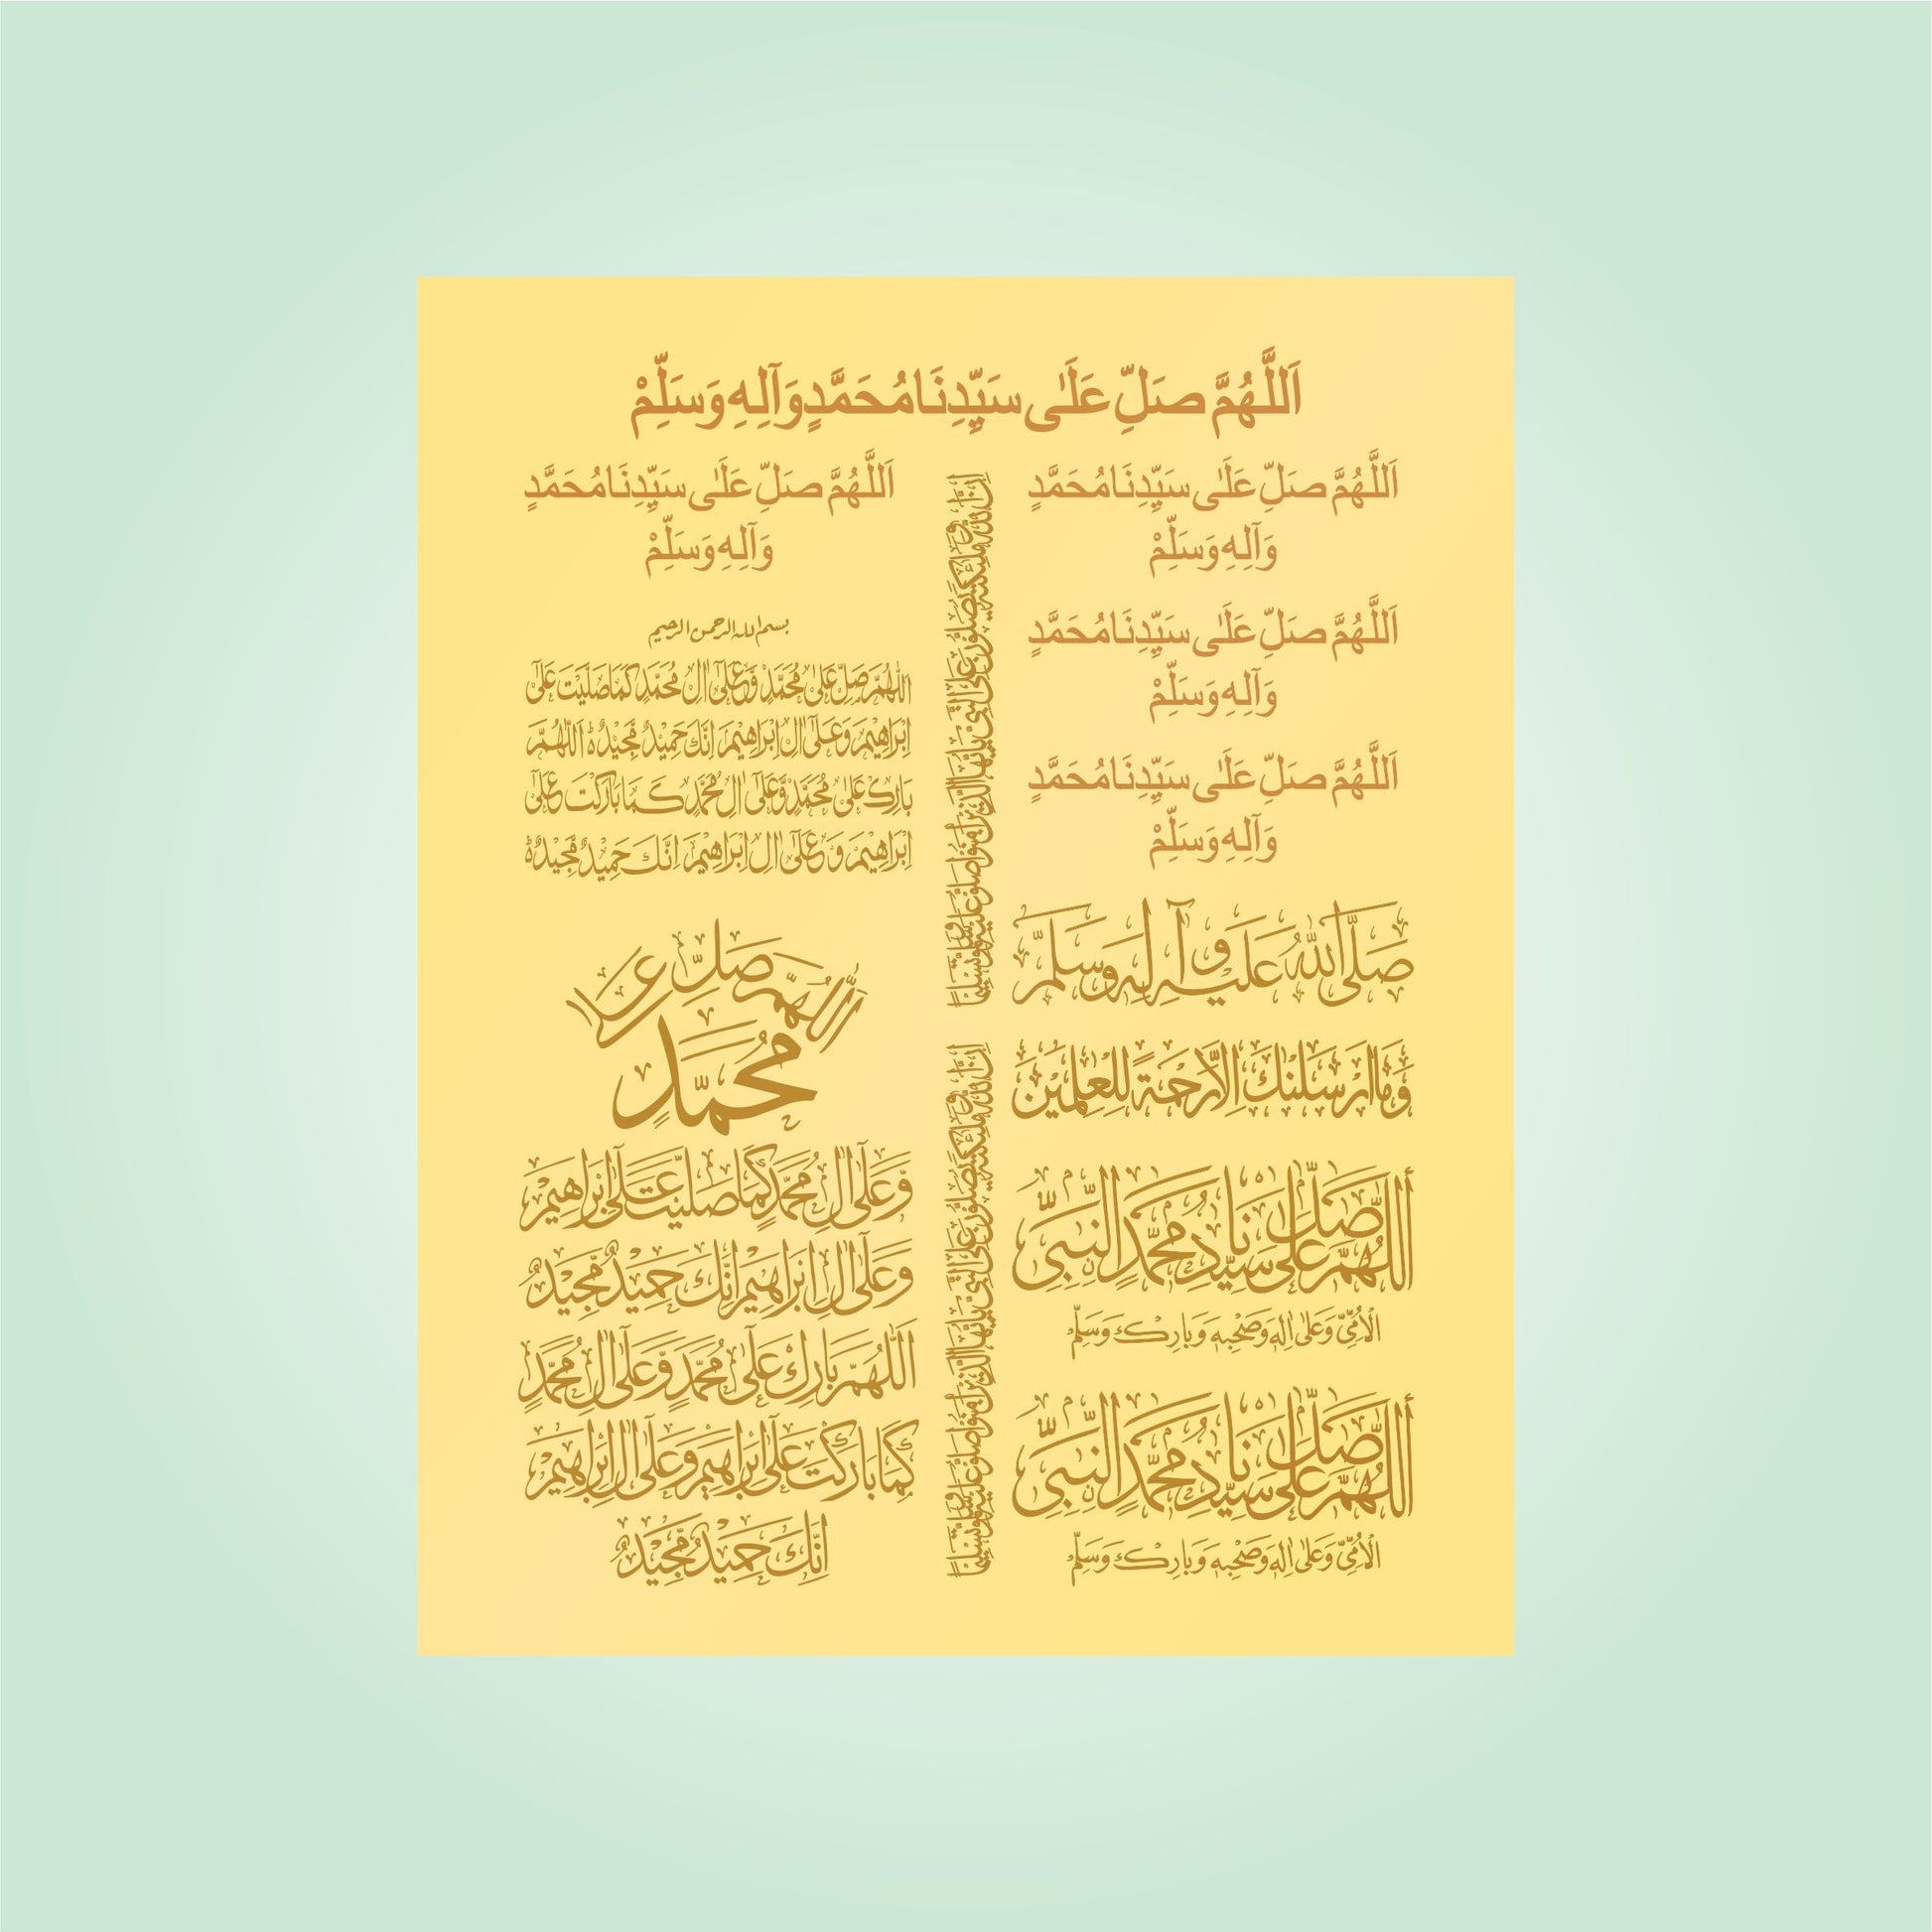 اَللَّهُمَّ صَلِّ عَلَىٰ سَيِّدِنَا مُحَمَّدٍ وَآلِهِ وَسَلِّمْ
اَللَّهُمَّ صَلِّ عَلَىٰ سَيِّدِنَا مُحَمَّدٍ
وَآلِهِ وَسَلِّمْ
اَللَّهُمَّ صَلِّ عَلَىٰ سَيِّدِنَا مُحَمَّدٍ
وَآلِهِ وَسَلِّمْ
اَللَّهُمَّ صَلِّ عَلَىٰ سَيِّدِنَا مُحَمَّدٍ
وَآلِهِ وَسَلِّمْ
صَلَّى اللهُ عَلَيْهِ وَآلِهِ وَسَلَّمَ
وَمَا أَرْسَلْنٰكَ اِلَّا رَحْمَةً لِّلْعٰلَمِيْنَ
أَللّٰهُمَّ صَلِّ عَلٰى سَيِّدِنَا مُحَمَّدٍ النَّبِيِّ
الْاُمِّيِّ وَعَلٰى اٰلِهٖ وَصَحْبِهٖ وَبَارِكْ وَسَلِّمْ
أَللّٰهُمَّ صَلِّ عَلٰى سَيِّدِنَا مُحَمَّدٍ النَّبِيِّ
الْاُمِّيِّ وَعَلٰى اٰلِهٖ وَصَحْبِهٖ وَبَارِكْ وَسَلِّمْ
اِنَّ اللهَ وَمَلٰٓئِكَتَهٗ يُصَلُّوْنَ عَلَى النَّبِيِّ يٰٓاَيُّهَا الَّذِيْنَ اٰمَنُوْا صَلُّوْا عَلَيْهِ وَسَلِّمُوْا تَسْلِيْمًا
اِنَّ اللهَ وَمَلٰٓئِكَتَهٗ يُصَلُّوْنَ عَلَى النَّبِيِّ يٰٓاَيُّهَا الَّذِيْنَ اٰمَنُوْا صَلُّوْا عَلَيْهِ وَسَلِّمُوْا تَسْلِيْمًا
اَللَّهُمَّ صَلِّ عَلَىٰ سَيِّدِنَا مُحَمَّدٍ
وَآلِهِ وَسَلِّمْ
بسم الله الرحمن الرحيم
اَللّٰهُمَّ صَلِّ عَلٰى مُحَمَّدٍ وَّعَلٰٓى اٰلِ مُحَمَّدٍ كَمَا صَلَّيْتَ عَلٰٓى
اِبْرَاهِيْمَ وَعَلٰٓى اٰلِ اِبْرَاهِيْمَ اِنَّكَ حَمِيْدٌ مَّجِيْدٌ ؕ اَللّٰهُمَّ
بَارِكْ عَلٰى مُحَمَّدٍ وَّعَلٰٓى اٰلِ مُحَمَّدٍ كَمَا بَارَكْتَ عَلٰٓى
اِبْرَاهِيْمَ وَعَلٰٓى اٰلِ اِبْرَاهِيْمَ اِنَّكَ حَمِيْدٌ مَّجِيْدٌ ؕ
اَللّٰهُمَّ صَلِّ عَلٰى
مُحَمَّدٍ
وَّعَلٰٓى اٰلِ مُحَمَّدٍ كَمَا صَلَّيْتَ عَلٰٓى اِبْرَاهِيْمَ
وَعَلٰٓى اٰلِ اِبْرَاهِيْمَ اِنَّكَ حَمِيْدٌ مَّجِيْدٌ
اَللّٰهُمَّ بَارِكْ عَلٰى مُحَمَّدٍ وَّعَلٰٓى اٰلِ مُحَمَّدٍ
كَمَا بَارَكْتَ عَلٰٓى اِبْرَاهِيْمَ وَعَلٰٓى اٰلِ اِبْرَاهِيْمَ
اِنَّكَ حَمِيْدٌ مَّجِيْدٌ